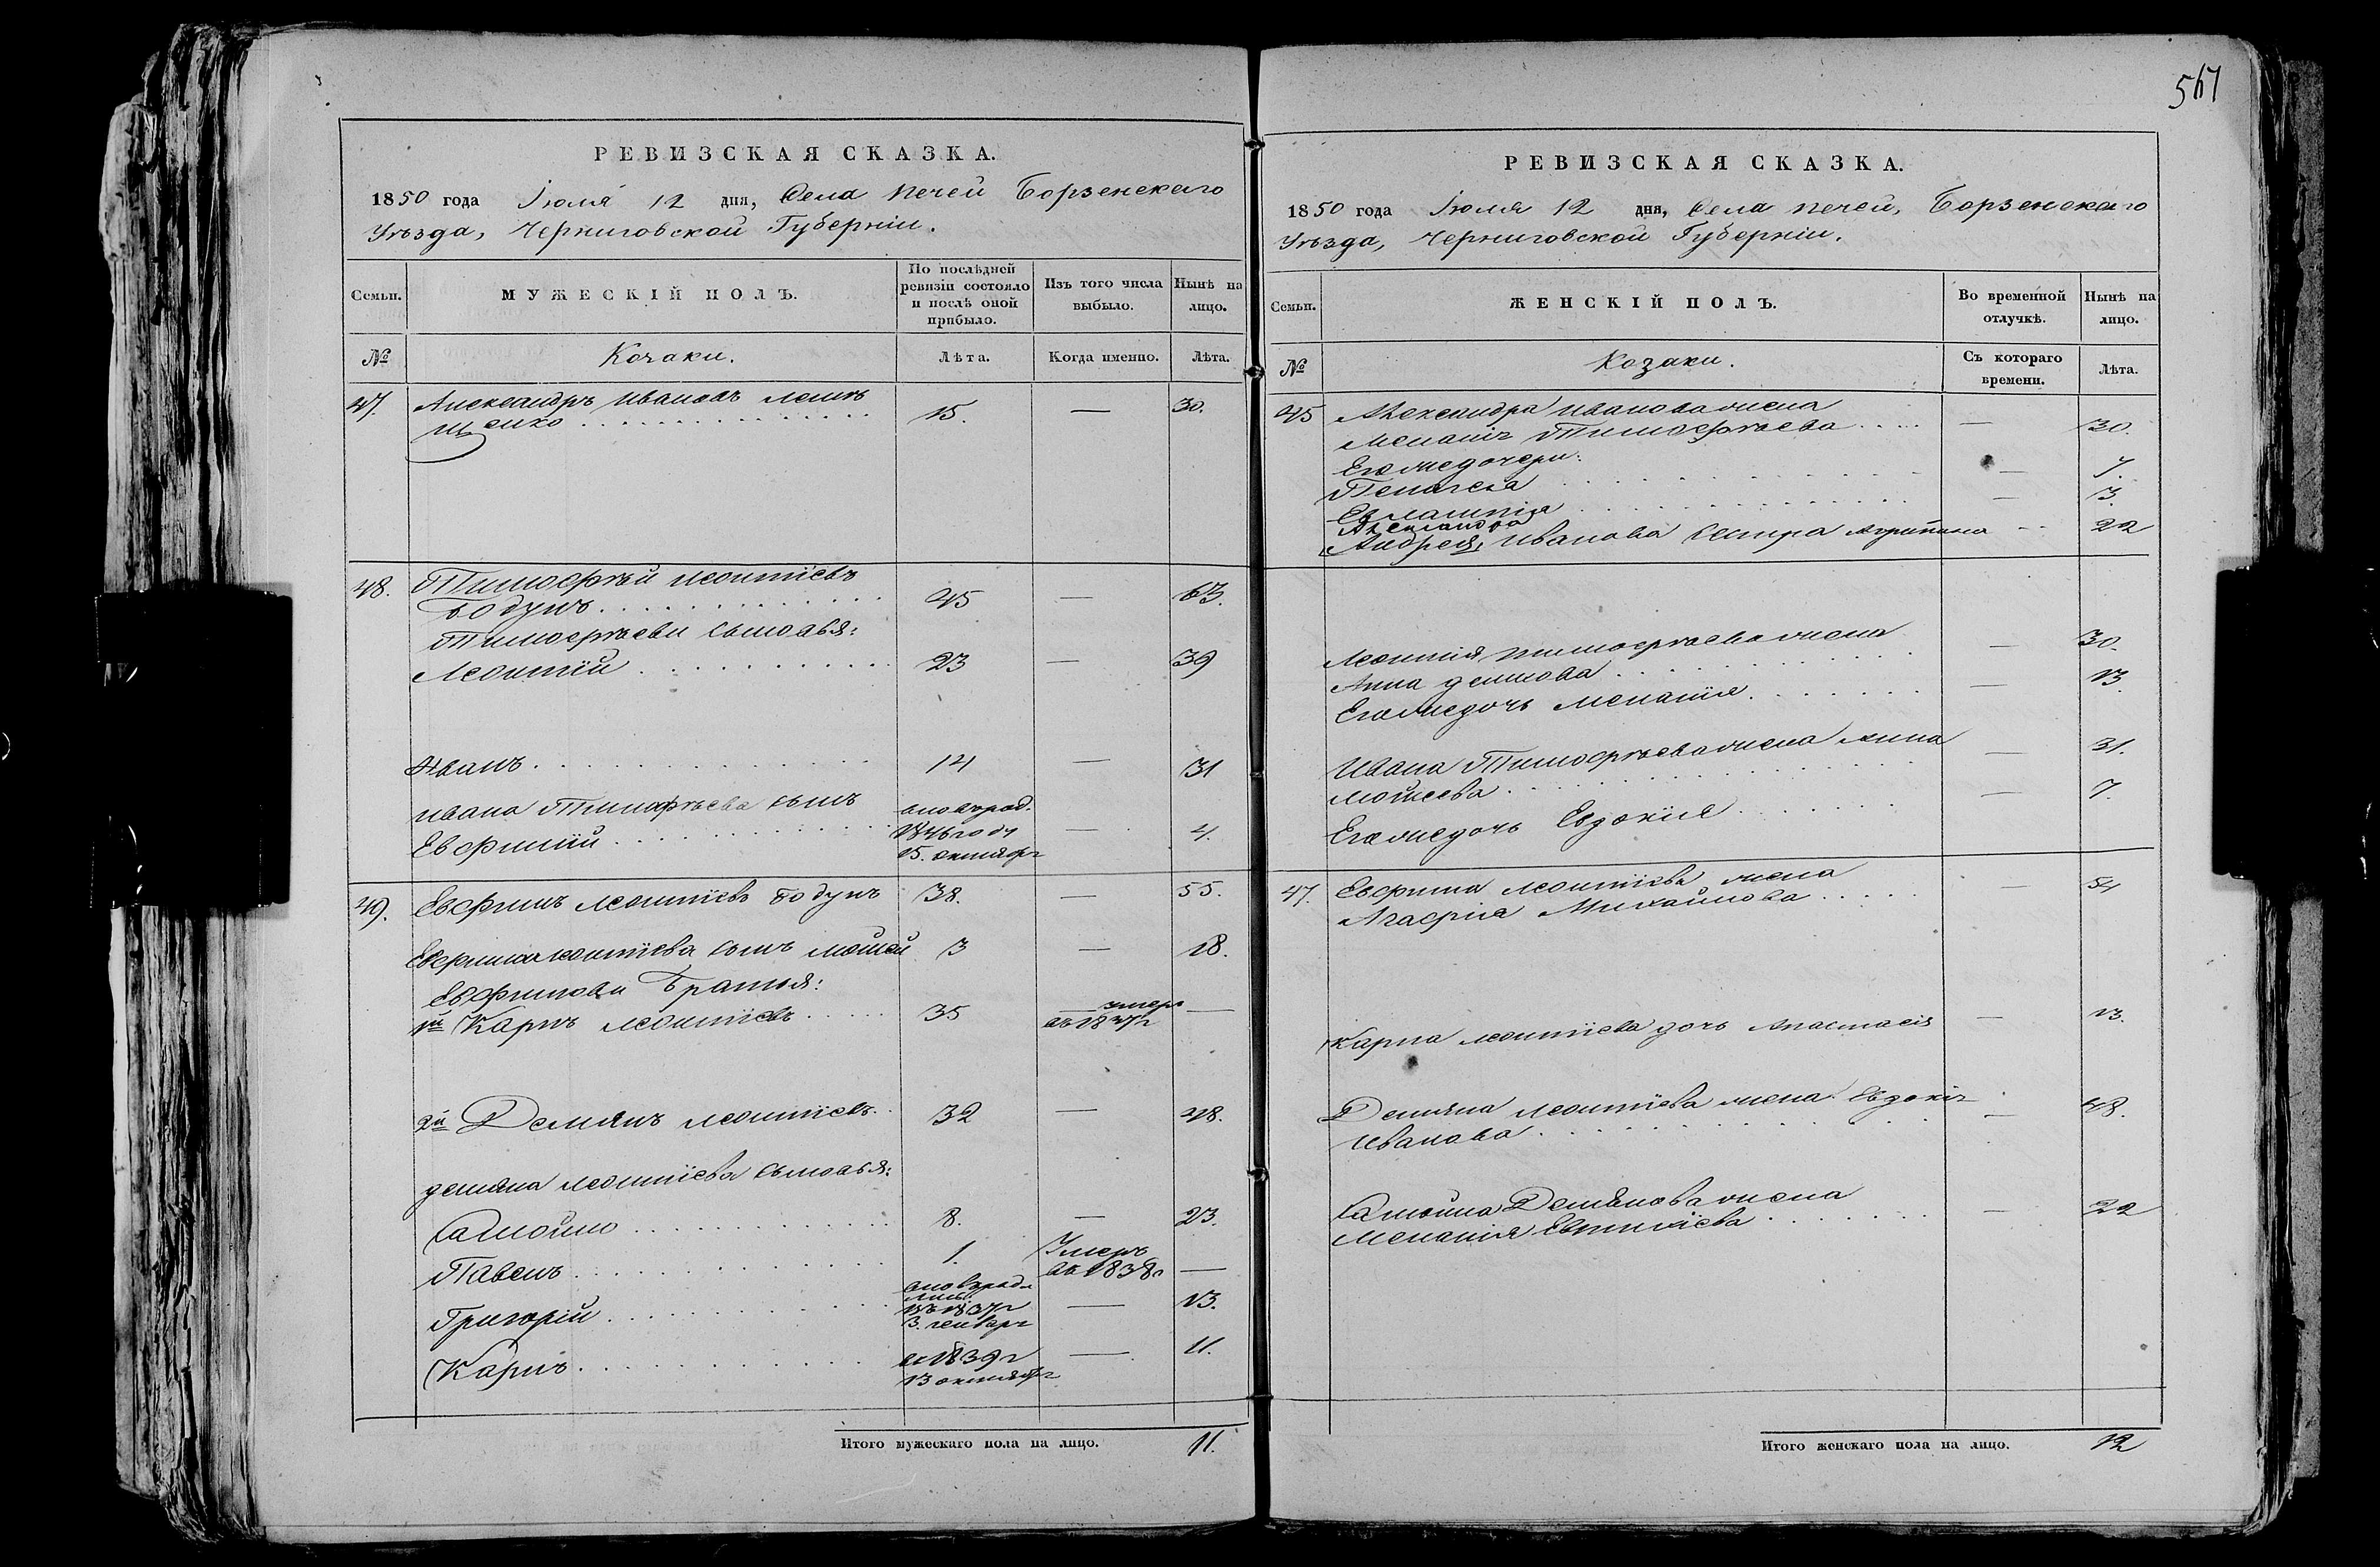 РЕВИЗСКАЯ СКАЗКА.
1850 года Іюля 12 дня, Села Печей Борзенскаго
Уѣзда, Черниговской Губерніи.
Семьи.
МУЖЕСКІЙ ПОЛЪ.
По послѣдней ревизіи состояло и послѣ оной прибыло.
Изъ того числа выбыло.
Нынѣ на лицо.
№
Козаки.
Лѣта.
Когда именно.
Лѣта.
47. Александръ Ивановъ
щенко 15. — 30.
48. Тимофѣй Леонтіевъ
Бодунъ 45 — 63.
Тимофѣеви сыновья:
Леонтій 23 — 39
Иванъ 14 — 31
Ивана Тимофѣева сынъ
Евфимій 1846 году 15. октября — 4.
49. Евфимъ Леонтіевъ Бодунъ 38. — 55.
Евфима Леонтіева сынъ Мойсей 3 — 18.
Евфимови Братья:
1й Карпъ Леонтіевъ 35 умеръ въ 1837г —
2й Демянъ Леонтіевъ 32 — 48.
Демяна Леонтіева сыновья:
Самойло 8. — 23.
Павелъ 1. Умеръ въ 1838г —
Григорій въ 1837г 3. генваря — 13.
Карпъ въ 1839г 13 октября — 11.
Итого мужескаго пола на лицо. 11.
567
РЕВИЗСКАЯ СКАЗКА.
1850 года Іюля 12 дня, Села Печей, Борзенскаго
Уѣзда, Черниговской Губерніи.
Семьи.
ЖЕНСКІЙ ПОЛЪ.
Во временной отлучкѣ.
Нынѣ на лицо.
№
Козаки.
Съ котораго времени.
Лѣта.
45 Александра Иванова жена
Меланія Тимофѣева — 30.
Его же дочери:
Пелагея — 7.
Евлампія — 3
Александра
Андрея, Иванова сестра Агрипина — 22
Леонтія Тимофѣева жена
Анна Демнова — 30.
Его же дочь Меланія — 13.
Ивана Тимофѣева жена Анна
Мойсеева — 31.
Его же дочь Евдокія — 7.
47. Евфима Леонтіева жена
Агафія Михайлова — 54
Карпа Леонтіева дочь Анастасія — 13.
Демяна Леонтіева жена Евдокія
Иванова — 48.
Самойла Демянова жена
Меланія Евтихіева — 22
Итого женскаго пола на лицо. 12